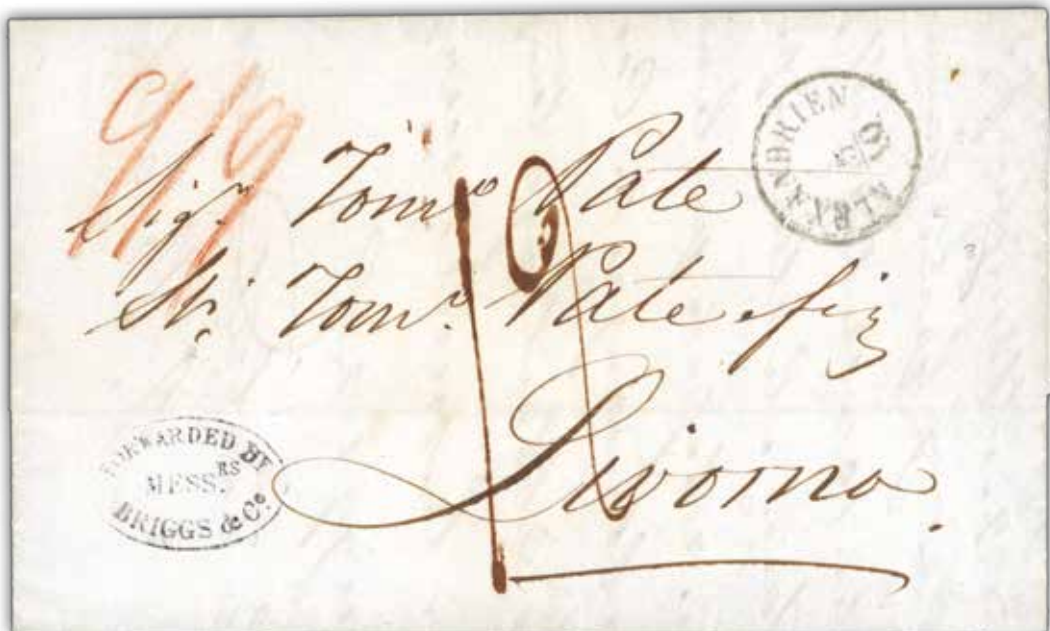 9/9
ALEXANDRIEN
Sigr. Tomo Pate
Tomo. Pate fiz
Livorno.
FORWARDED BY
MESS.RS
BRIGGS & Co.